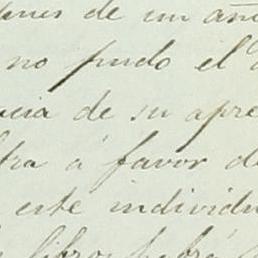 de un año
no pudo el
de su apre
tra á favor de
este individu
libros habrá